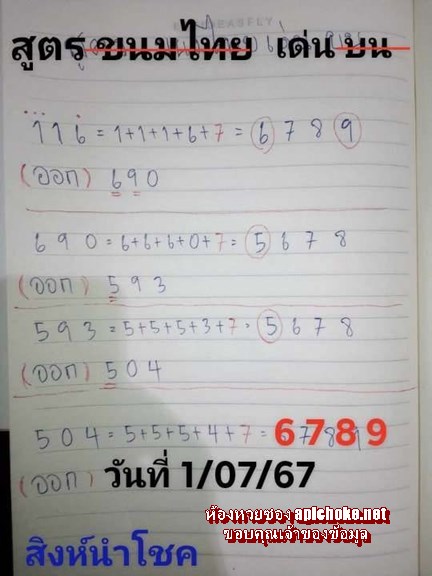 สูตร ขนมไทย เด่น บน
116 = 1+1+1+6+7 = 6 7 8 9
(ออก) 690
690 = 6+6+6+0+7 = 5 6 7 8
(ออก) 593
593 = 5+5+5+3+7 = 5 6 7 8
(ออก) 504
504 = 5+5+5+4+7 = 6789
(ออก) วันที่ 1/07/67
ห้องหวยซอง apichoke.net
ขอบคุณเจ้าของข้อมูล
สิงห์นำโชค